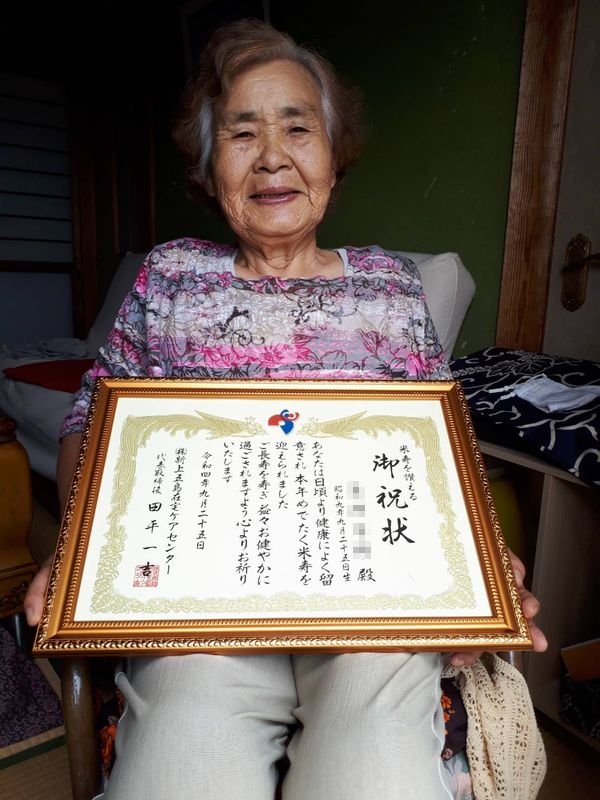 米寿を讃える
御祝状
殿
昭和九年九月二十五日生
あなたは日頃より健康によく留
意され 本年めでたく米寿を
迎えられました
ご長寿を寿ぎ 益々お健やかに
過ごされますよう心よりお祈り
いたします
令和四年九月二十五日
㈱新上五島在宅ケアセンター
代表取締役 田平一吉